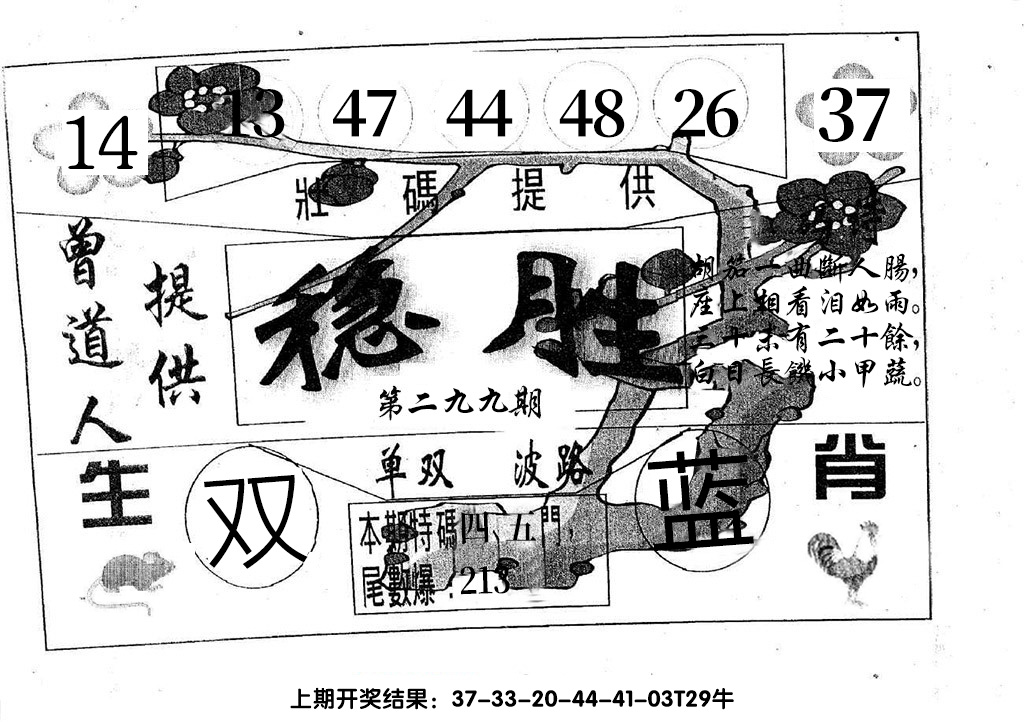 14 13 47 44 48 26 37
壯碼提供
特
曾道人
提供
稳胜
第二九九期
胡笳一曲斷人腸,
座上相看泪如雨。
三十未有二十餘,
白日長饑小甲蔬。
单双 波路
生肖
双
蓝
本期特碼四、五門,
尾數爆:213
上期开奖结果：37-33-20-44-41-03T29牛